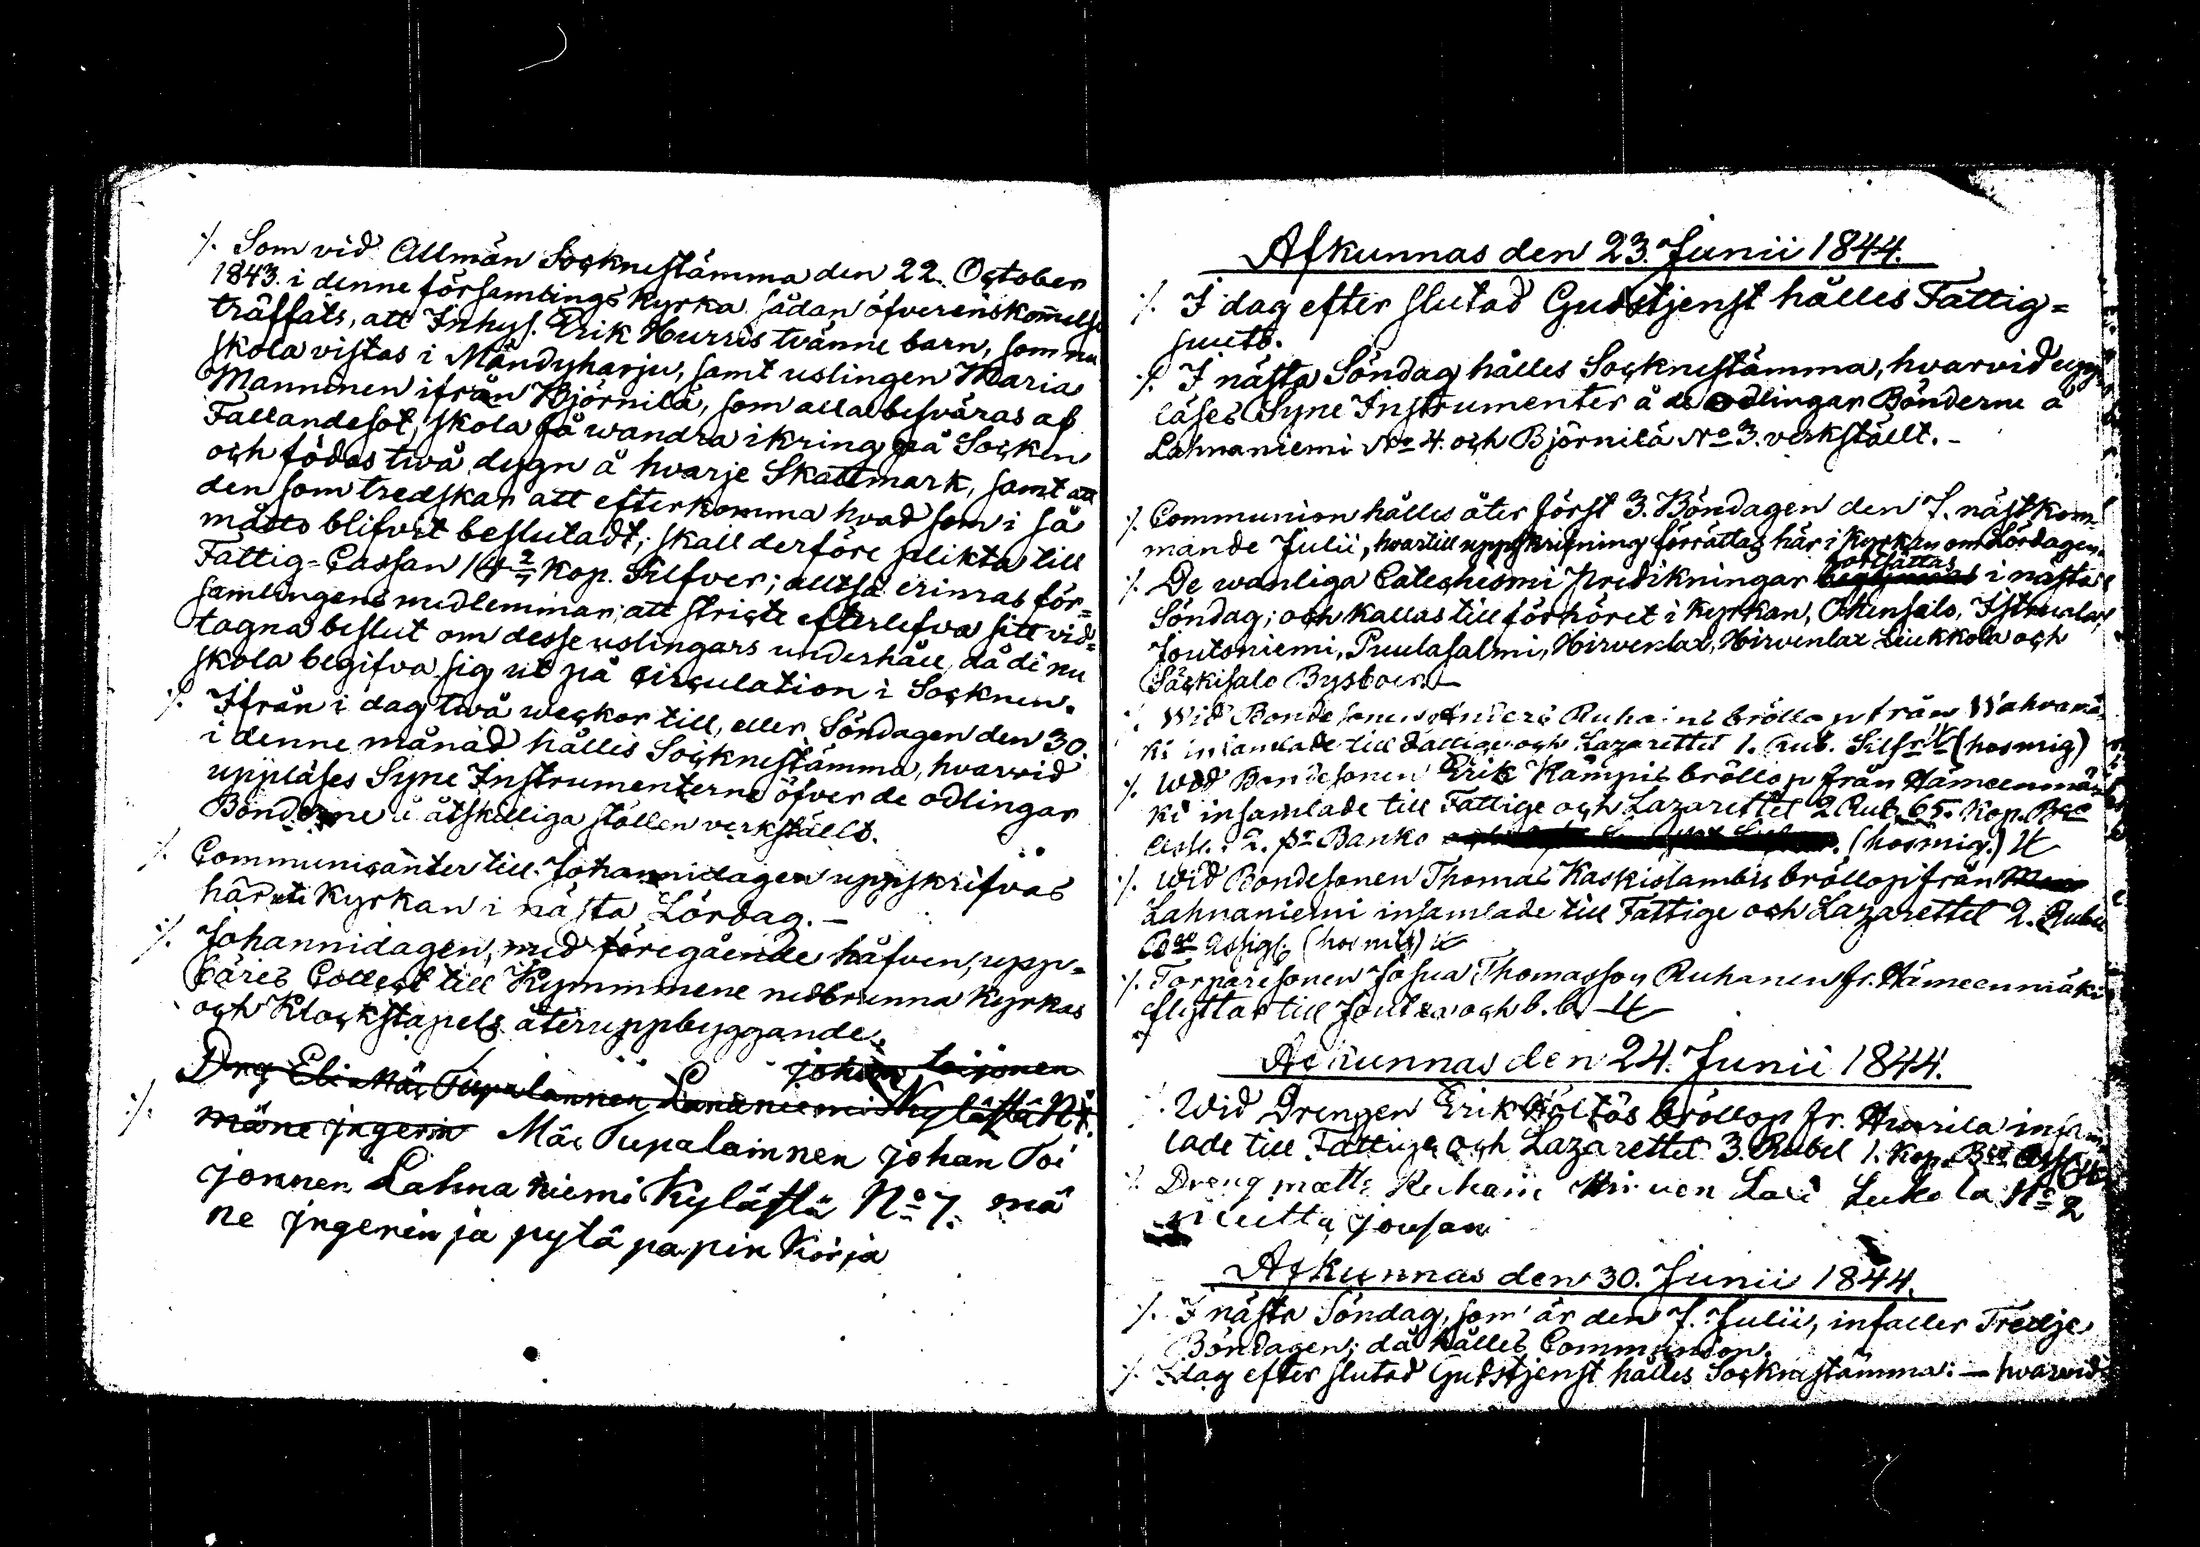 ·/. Som vid Allmän Socknestämma den 22. October
1843. i denne församlings Kyrka sådan öfverenskommelse
träffats, att Inhys. Erik Hurris tvänne barn, som nu
skola vistas i Mändyharju, samt uslingen Maria
Manninen ifrån Björnilä, som alla besväras af
Fallandesot, skola få wandra ikring på Socken
och födas twå dygn å hvarje Skattmark, samt att
den som tredskar att efterkomma hvad som i så
måtto blifvit beslutadt, skall derföre plikta till
Fattig-Cassan 14 2/7 Kop. Silfver; alltså erinras för-
samlingens medlemmar att stricte efterlefva sitt vid-
tagna beslut om desse uslingars underhåll, då de nu
skola begifva sig ut på circulation i Socknen.
·/. Ifrån i dag twå weckor till, eller Söndagen den 30.
i denne månad hålles Socknestämma, hvarvid
uppläses Syne Instrumenterne öfver de odlingar
Bönderne å åtskilliga ställen verkställt.
·/. Communicanter till Johannidagen uppskrifvas
här i Kyrkan i nästa Lördag. –
·/. Johannidagen, med föregående håfven, upp-
bäres Collect till Kymmene nedbrunna Kyrkas
och Klockstapels återuppbyggande.
johan Toijonen
Drg Eli Mäc Tupalainnen Lananiemi Kylästä N 7.
·/. mäne jngerin Mäc Tupalainnen johan Toi
jonnen Lahna niemi Kylästä No 7. mä
ne jngerin ja pytä papin Kirja
Afkunnas den 23. Junii 1844.
·/. I dag efter slutad Gudstjenst hålles Fattig-
·/. I nästa Söndag hålles Socknestämma, hvarvid upp-
läses Syne Instrumenter å de odlingar Bönderne å
Lahnaniemi No 4. och Björnilä No 3. verkställt. –
·/. Communion hålles åter först 3. Böndagen den 7. nästkom-
mande Julii, hvartill uppskrifning förrättas här i Kyrkan om Lördagen.
fortsättas
·/. De wanliga Catechismi predikningar i nästa
Söndag; och kallas till förhöret i Kyrkan, Ollensalo, Istruala,
Joutsniemi, Puulasalmi, Hirvenlax, Hirvenlax Liukkola och
Säckisalo Bysboer. –
·/. Wid Bondesonen Anders Ruhains bröllop från Wahvamä
ki insamlade till Fattige och Lazarettet 1. Rub. Silfr (hosmig)
·/. Wid Bondesonen Erik Kämpis bröllop från Hämeenmä
ki insamlade till Fattige och Lazarettet 2 Rub. 65. Kop. Bco
Banko (hosmig.)
·/. Wid Bondesonen Thomas Kaskislambis bröllop ifrån
Lahnaniemi insamlade till Fattige och Lazarettet 2. Rubel
Bco Assign. (hosmig)
·/. Torparesonen Josua Thomasson Ruhanen fr. Hämeenmäki
flyttar till Joutsa och b. b.
Afkunnas den 24. Junii 1844.
·/. Wid Drengen Erik Höltös bröllop fr. Hurila insam
lade till Fattige och Lazarettet 3. Rubel 1. Kop. Bco Ass.
·/. Dreng matts Ruhain Hirven Laxi Lukola No 2
muutta jousan
Afkunnas den 30. Junii 1844.
·/. I nästa Söndag, som är den 7. Julii, infaller Tredje
Böndagen; då hålles Communion.
·/. Idag efter slutad Gudstjenst hålles Socknestämma: – hvarvid